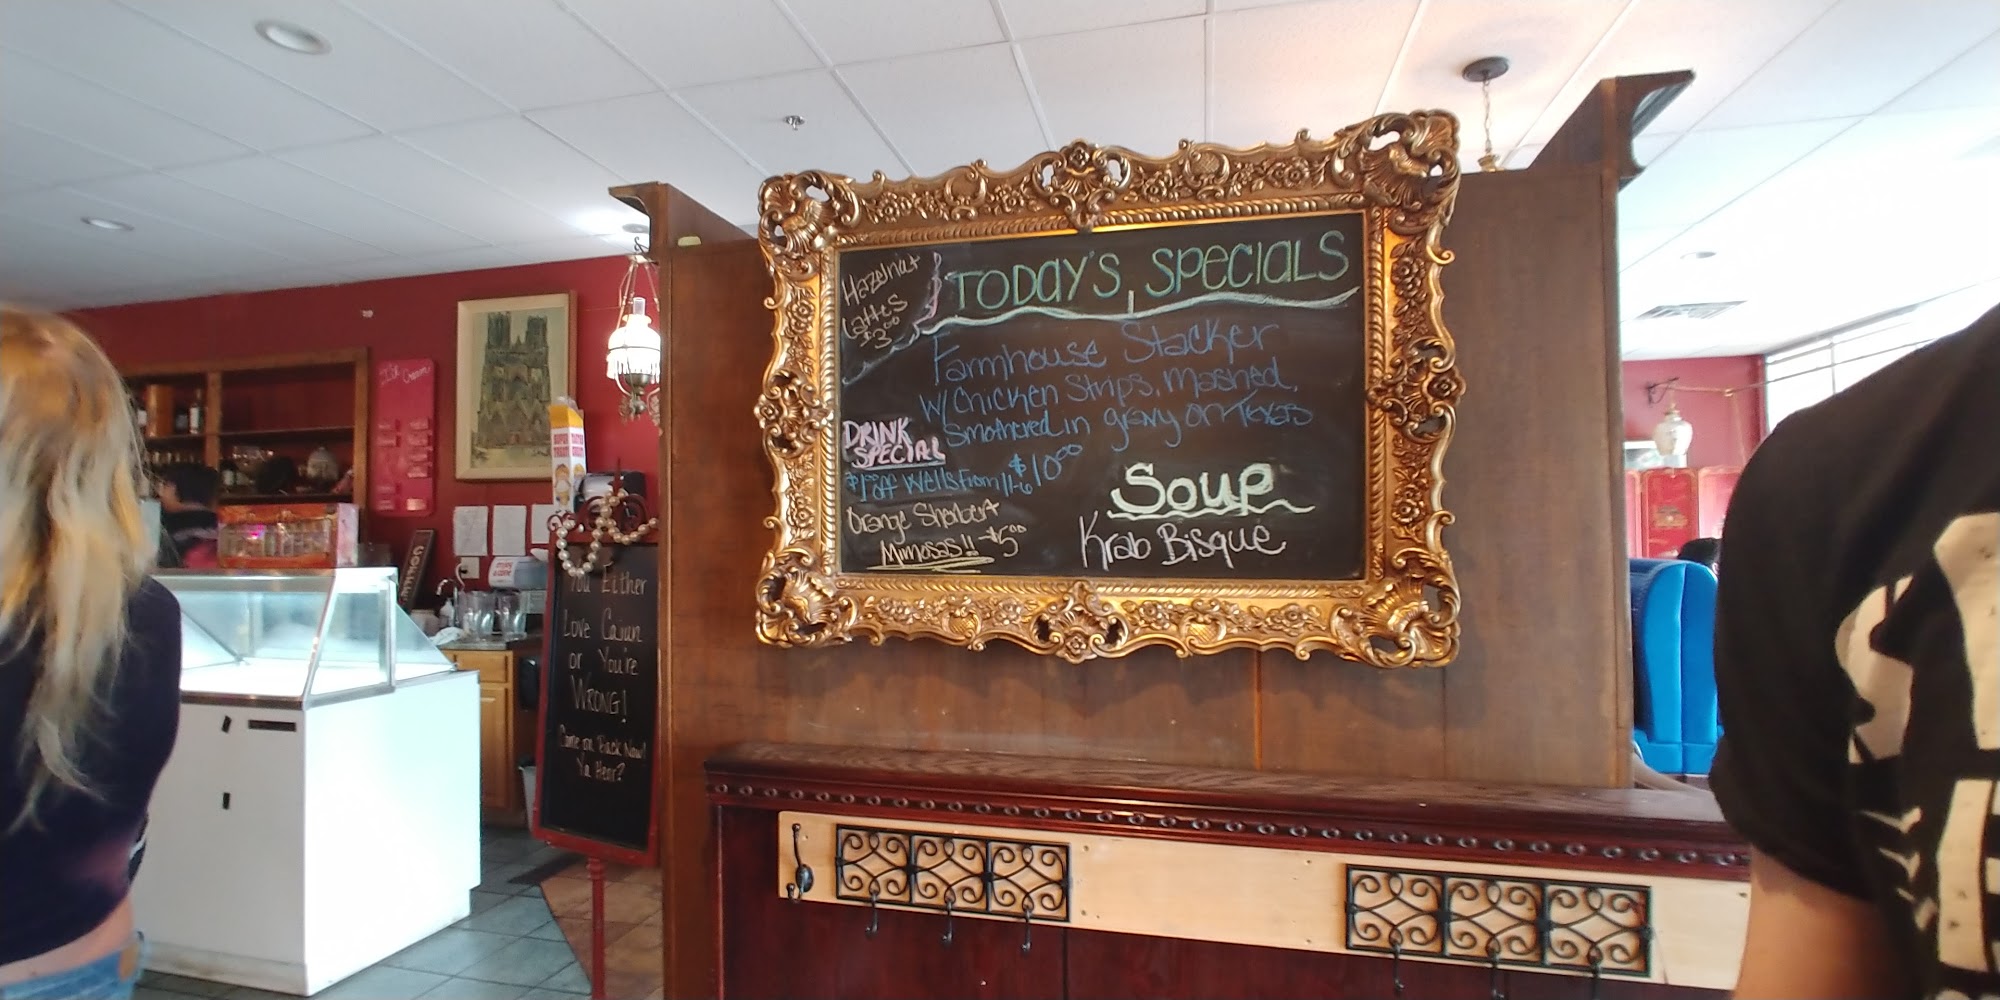 Hazelnut
Lattes
$3.00
TODAY'S SPECIALS
Farmhouse Stacker
W/ Chicken Strips, Mashed,
Smothered in gravy on Texas
$10.00
DRINK
SPECIAL
$1.00 off Wells From 11-6
Orange Sherbert
Mimosas!! - $5.00
Soup
Krab Bisque
You Either
Love Cajun
or You're
WRONG!
Come on Back Now!
Ya Hear?
Ice Cream